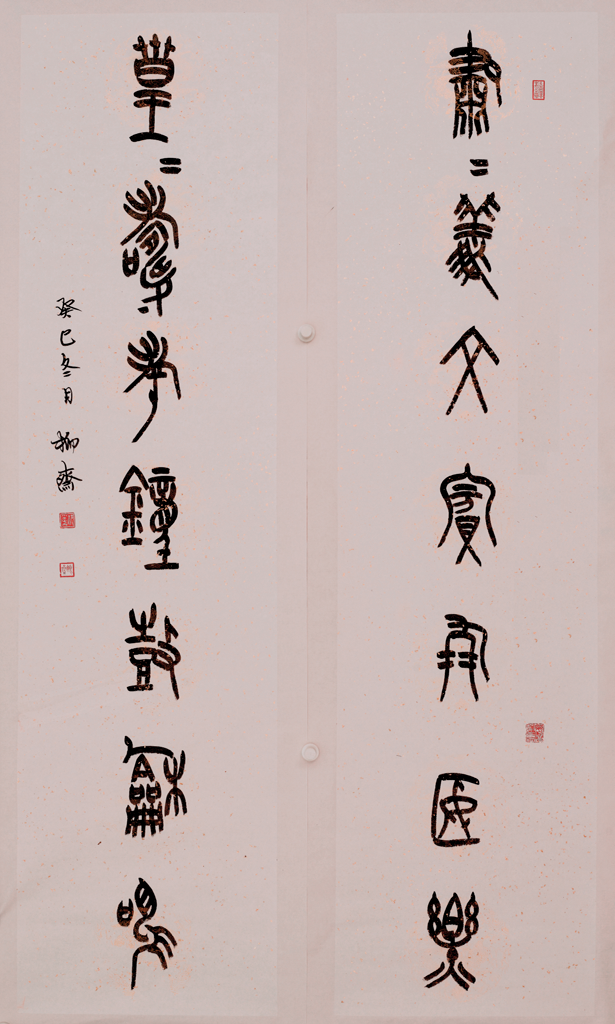 肅〓義文賓匽樂
皇〓壽考鐘鼓龢鳴
癸巳冬月 柳齋